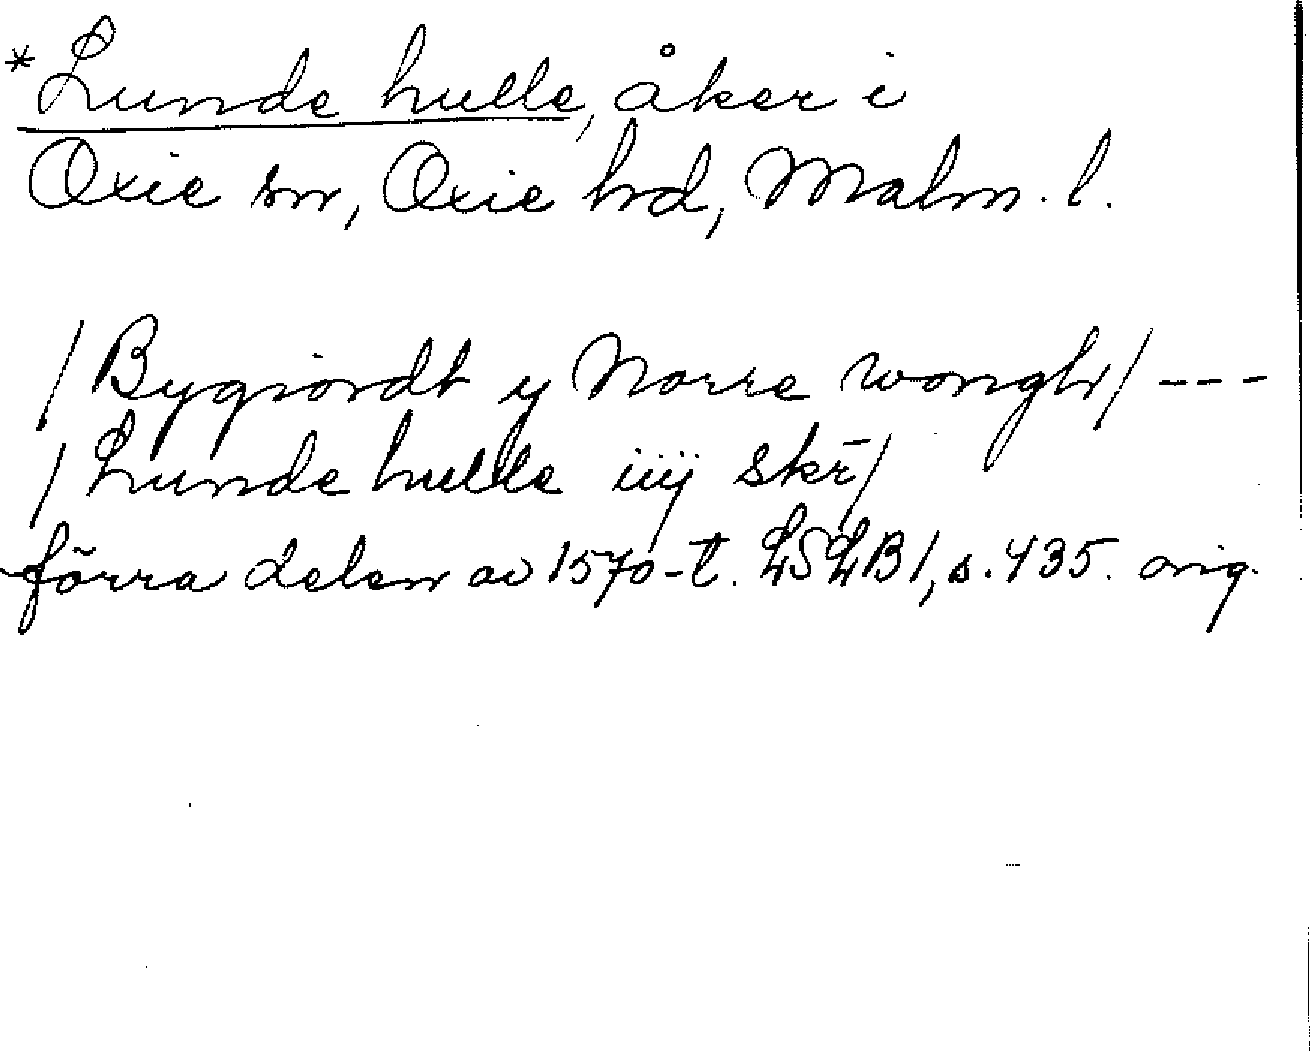 *Lunde hulle, åker i
Oxie sn, Oxie hd, Malm. l.
/Bygiordt y Norre wongh/ ---
/Lunde hulle iiij skr̄/
förra delen av 1570-t. LSLB 1, s. 435. orig.